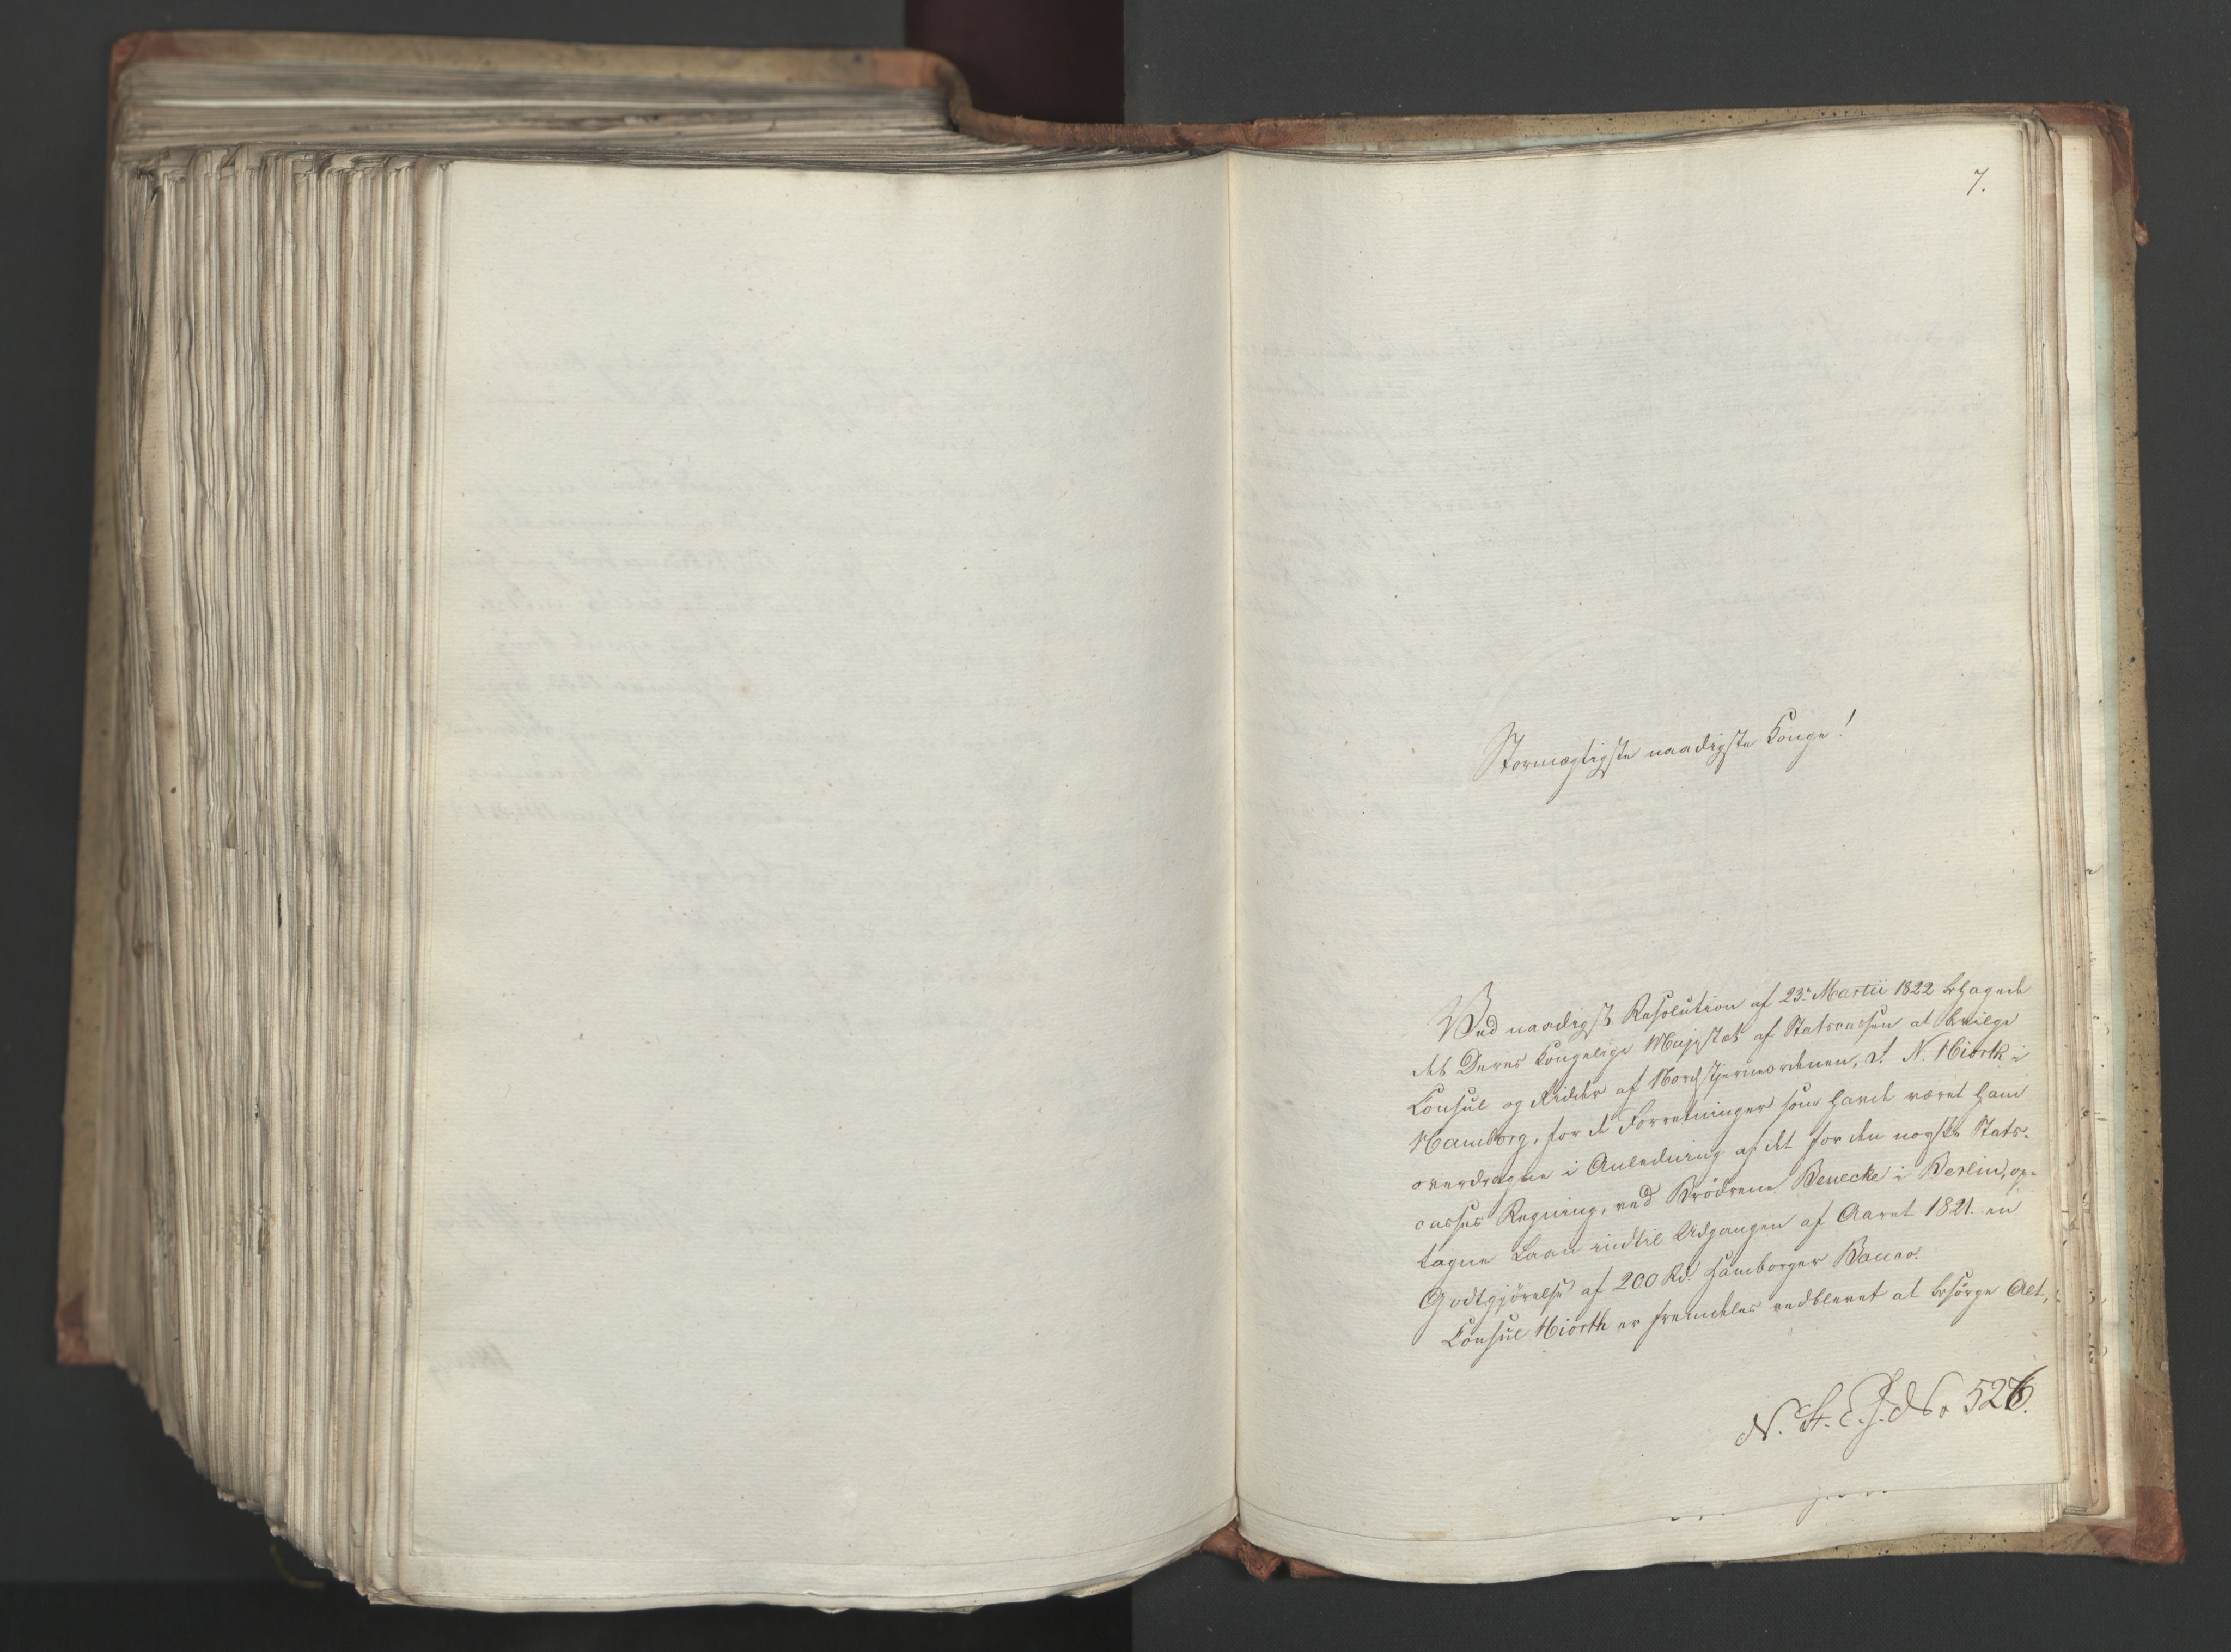 7.
Stormægtigste naadigste Konge!
Ved naadigst Resolution af 23de Martii 1822 behagede
det Deres Kongelige Majestæt af Statscassen at bevilge
Consul og Ridder af Nordstjerneordenen, J. N. Hiorth i
Hamborg, for de Forretninger som havde været ham
overdragne i Anledning af det for den norske Stats-
casses Regning, ved Brödrene Benecke i Berlin, op-
tagne Laan indtil Udgangen af Aaret 1821. en
Godtgjörelse af 200 Rd. Hamborger Banco.
Consul Hiorth er fremdeles vedblevet at besörge Alt,
N. St. E. J. No 526.